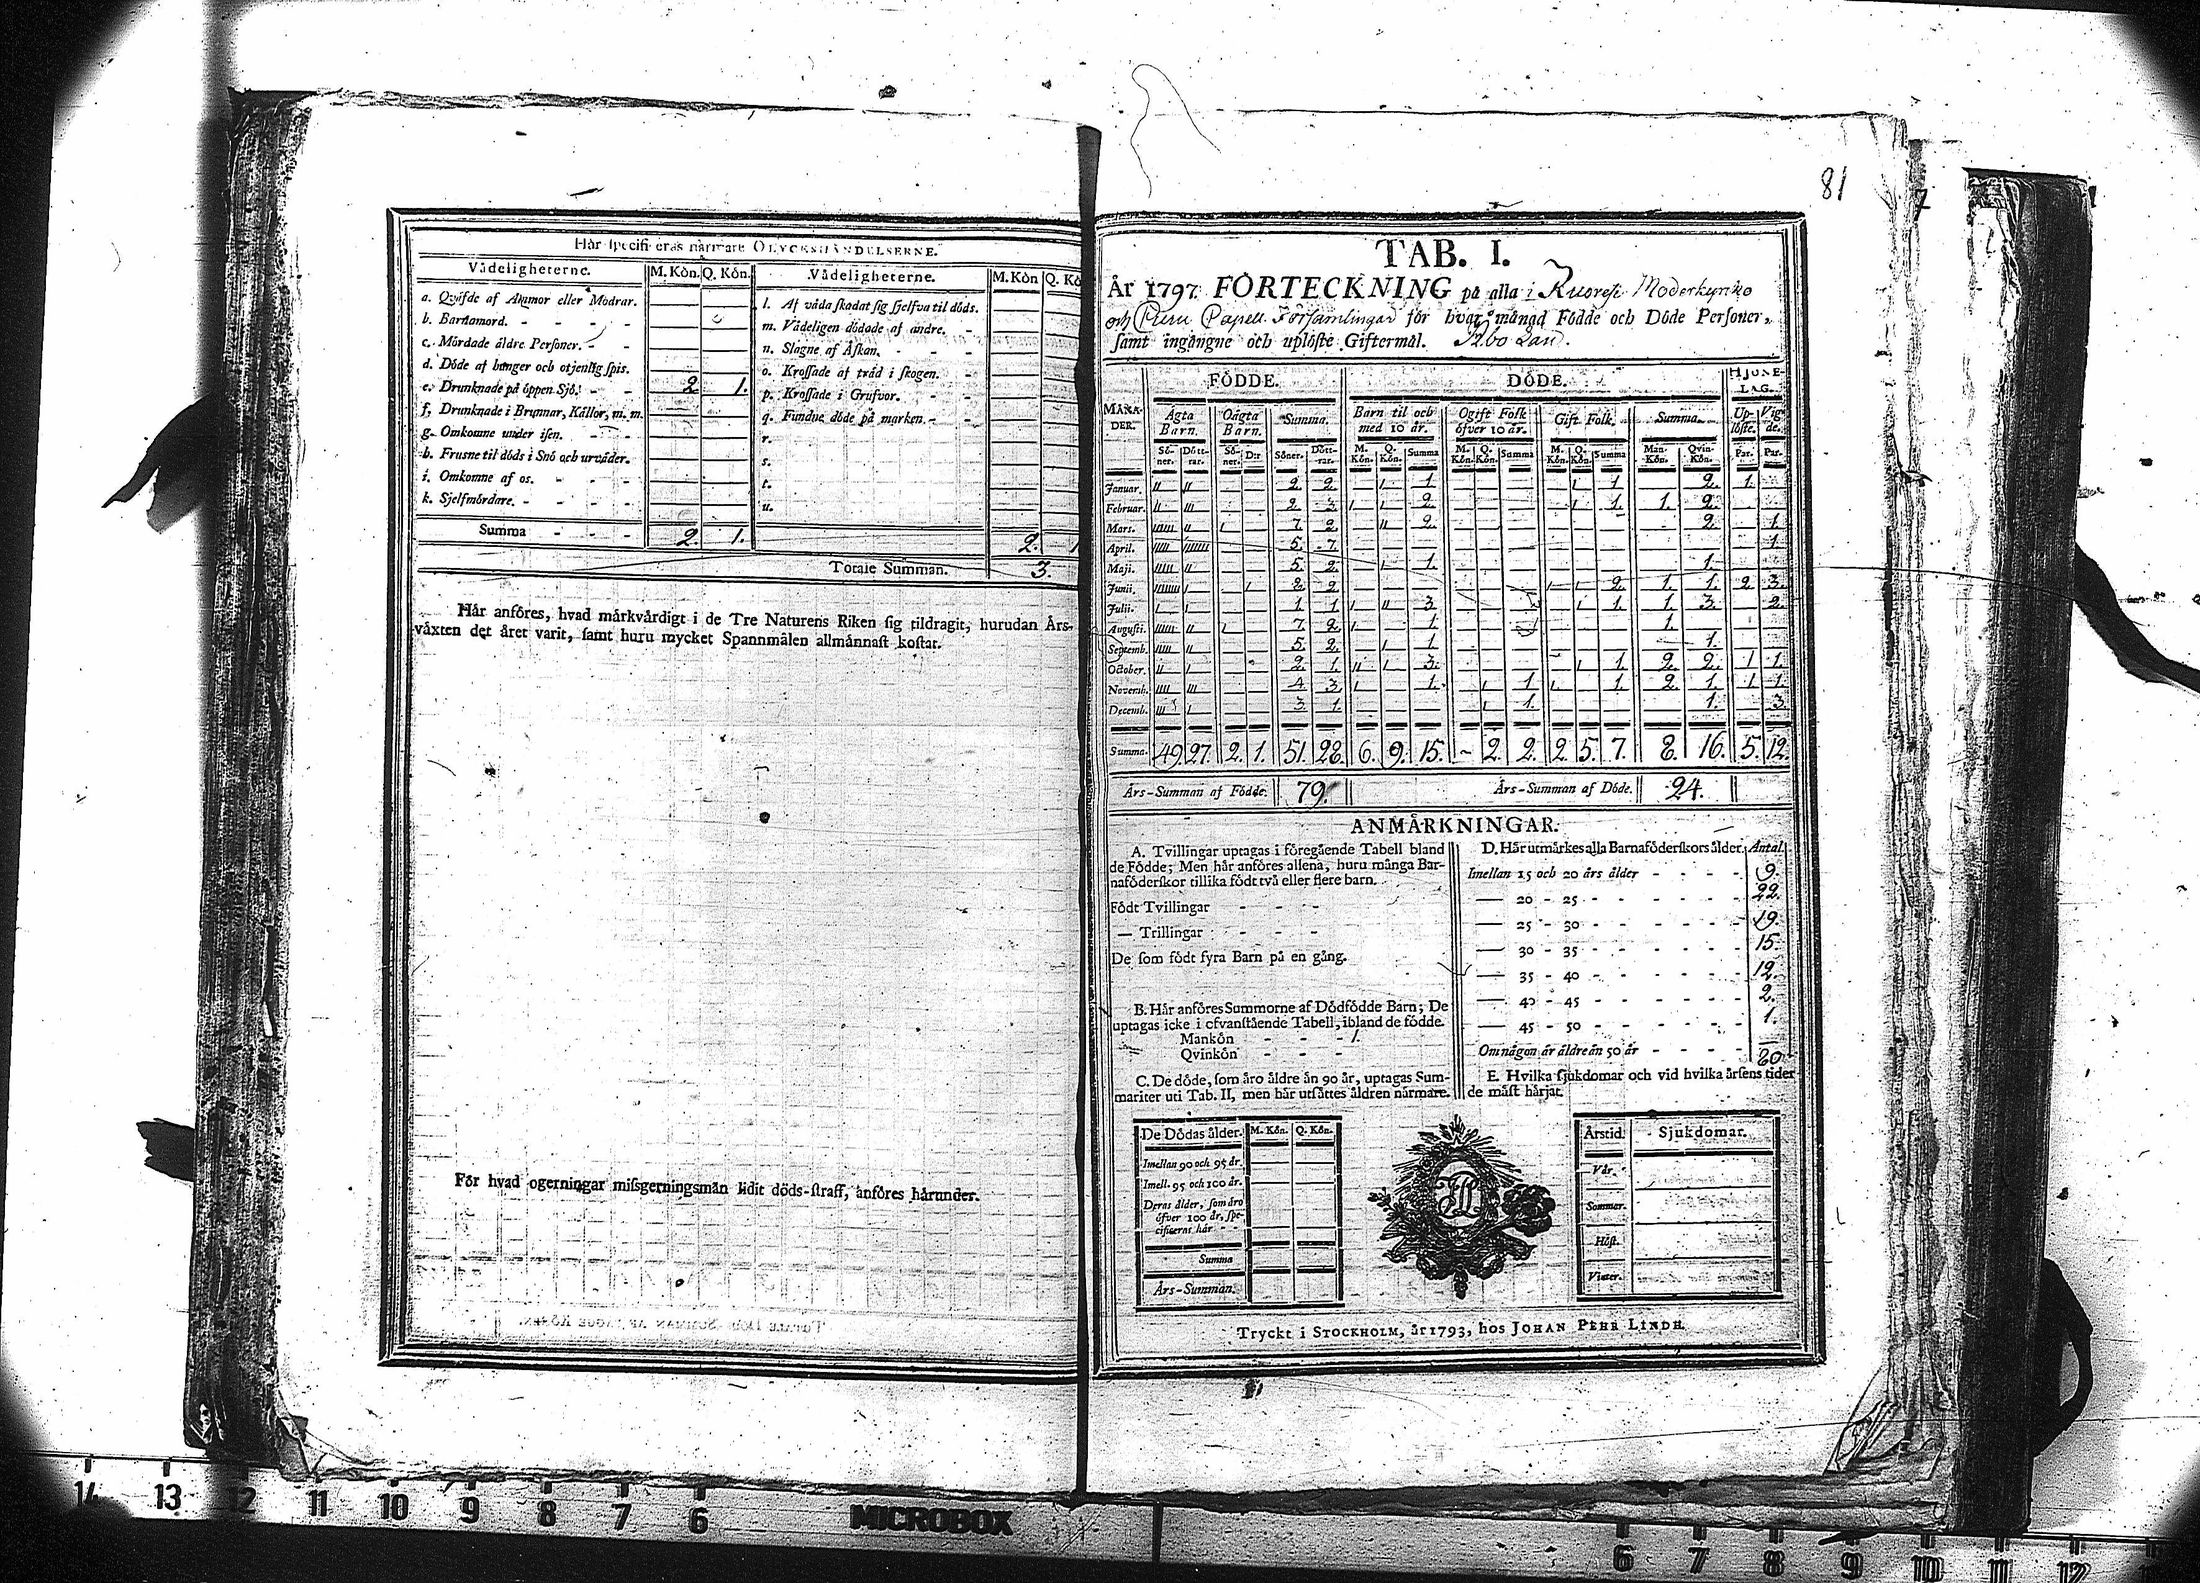 81
7
Här specificeras närmare OLYCKSHÄNDELSERNE.
Vådeligheterne. M. Kön. Q. Kön. Vådeligheterne. M. Kön Q. Kö
a. Qväfde af Ammor eller Modrar.
b. Barnamord. - - - -
c. Mördade äldre Personer. - -
d. Döde af hunger och otjenlig spis.
e. Drunknade på öppen Sjö. 2. 1.
f. Drunknade i Brunnar, Källor, m. m.
g. Omkomne under isen. - - -
h. Frusne til döds i Snö och urväder.
i. Omkomne af os. - - - -
k. Sjelfmördare. - - - -
l. Af våda skadat sig sjelfva til döds.
m. Vådeligen dödade af andre. -
n. Slagne af Åskan. - - -
o. Krossade af träd i skogen. -
p. Krossade i Grufvor. - - -
q. Fundne döde på marken. - -
r.
s.
t.
u.
Summa - - - 2. 1. 2. 1
Totale Summan. 3.
Här anföres, hvad märkvärdigt i de Tre Naturens Riken sig tildragit, hurudan Års-
växten det året varit, samt huru mycket Spannmålen allmännast kostat.
För hvad ogerningar missgerningsmän lidit döds-straff, anföres härunder.
TAB. I.
År 1797. FÖRTECKNING på alla i Kuorese Moderkyrko
och Capell Församlingar för hvar månad Födde och Döde Personer,
samt ingångne och uplöste Giftermål. Åbo Län.
FÖDDE. DÖDE. HJONE-
LAG.
MÅNA-
DER. Ägta Barn. Oägta Barn. Summa. Barn til och med 10 år. Ogift Folk öfver 10 år. Gift Folk. Summa. Up-löste. Vig-de.
Sö-ner. Dött-rar. Sö-ner. D:r Söner. Dött-rar. M. Kön. Q. Kön. Summa M. Kön. Q. Kön. Summa M. Kön. Q. Kön. Summa Man-Kön. Qvin-Kön. Par. Par.
Januar. II II 2. 2. I 1. I 1. 2. 1.
Februar. II III 2. 3. I I 2. I 1. 1. 2.
Mars. IIIIII II I 7. 2. II 2. 2. 1.
April. IIIII IIIIIII 5. 7. 1.
Maji. IIIII II 5. 2. I 1. 1.
Junii. I 2. I I 2. 1. 1. 2. 3.
Julii. I I 1. 1. I II 3. I 1. 1. 3. 2.
Augusti. IIIIII II I 7. 2. I 1. 1.
Septemb. IIIII II 5. 2. I 1. 1.
October. II I 2. 1. II I 3. I 1. 2. 2. 1 1.
Novemb. IIII III 4. 3. I 1. I 1. I 1. 2. 1. 1 1.
Decemb. III I 3. 1. I 1. 1. 3.
Summa. 49. 27. 2. 1. 51. 28. 6. 9. 15. - 2. 2. 2. 5. 7. 8. 16. 5. 12.
Års-Summan af Födde. 79. Års-Summan af Döde. 24.
ANMÄRKNINGAR.
A. Tvillingar uptagas i föregående Tabell bland
de Födde; Men här anföres allena, huru många Bar-
naföderskor tillika födt två eller flere barn.
Födt Tvillingar - - -
— Trillingar - - -
De som födt fyra Barn på en gång.
B. Här anföres Summorne af Dödfödde Barn; De
uptagas icke i ofvanstående Tabell, ibland de födde.
Mankön - - - 1.
Qvinkön - - -
C. De döde, som äro äldre än 90 år, uptagas Sum-
mariter uti Tab. II, men här utsättes åldren närmare.
D. Här utmärkes alla Barnaföderskors ålder. Antal.
Imellan 15 och 20 års ålder - - - - 9.
— 20 - 25 - - - - - - 22.
— 25 - 30 - - - - - - 19.
— 30 - 35 - - - - - - 15.
— 35 - 40 - - - - - - 12.
— 40 - 45 - - - - - - 2.
— 45 - 50 - - - - - - 1.
Om någon är äldre än 50 år - - - -
80.
E. Hvilka sjukdomar och vid hvilka årsens tider
de mäst härjat.
De Dödas ålder. M. Kön. Q. Kön.
Imellan 90 och 95 år.
Imell. 95 och 100 år.
Deras ålder, som äro
öfver 100 år, spe-
cificeras här - -
Summa
Års-Summan.
Årstid. Sjukdomar.
Vår.
Sommar.
Höst.
Vinter.
Tryckt i STOCKHOLM, år 1793, hos JOHAN PEHR LINDH.
14 13 12 11 10 9 8 7 6 MICROBOX 6 7 8 9 10 11 12